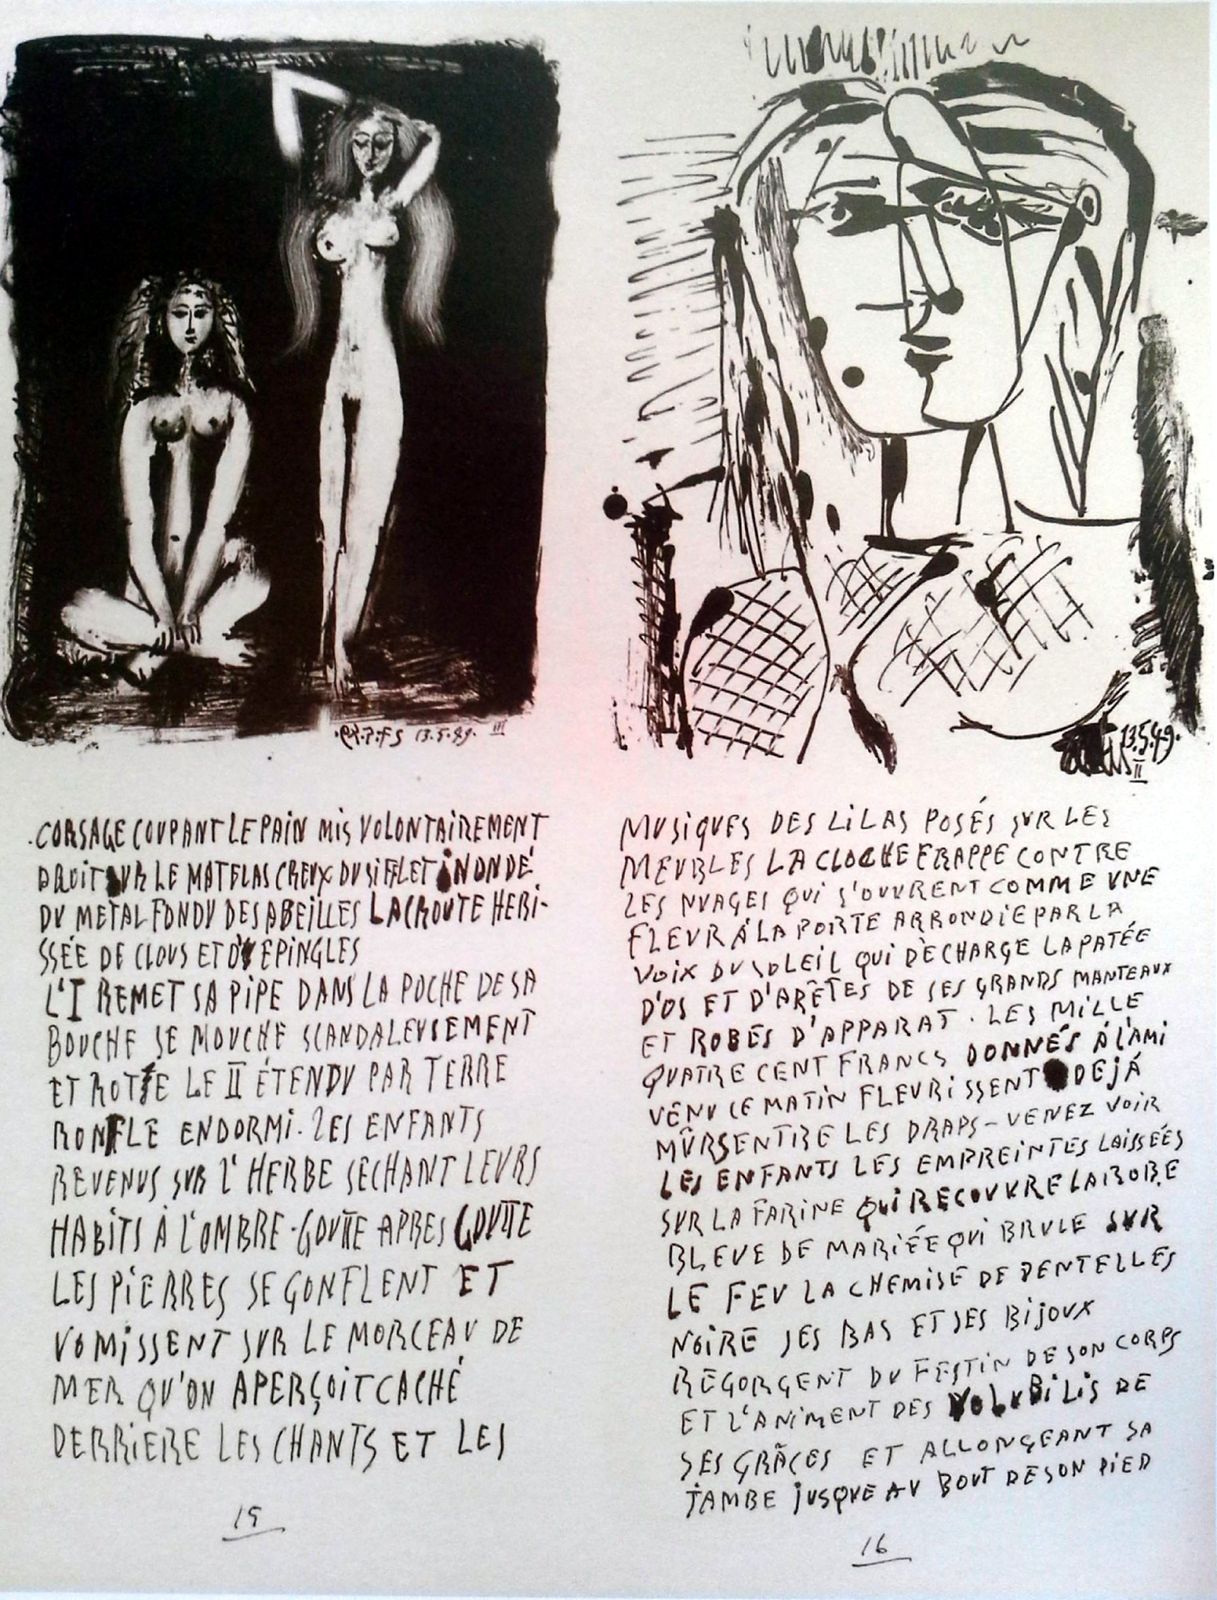 13.5.49. III
.CORSAGE COUPANT LE PAIN MIS VOLONTAIREMENT
DROIT SUR LE MATELAS CREUX DU SIFFLET INONDÉ
DU METAL FONDU DES ABEILLES LA CROUTE HERI-
SSÉE DE CLOUS ET D'EPINGLES
L'I REMET SA PIPE DANS LA POCHE DE SA
BOUCHE SE MOUCHE SCANDALEUSEMENT
ET ROTE LE II ÉTENDU PAR TERRE
RONFLE ENDORMI. LES ENFANTS
REVENUS SUR L'HERBE SECHANT LEURS
HABITS À L'OMBRE-GOUTTE APRES GOUTTE
LES PIERRES SE GONFLENT ET
VOMISSENT SUR LE MORCEAU DE
MER QU'ON APERÇOIT CACHÉ
DERRIERE LES CHANTS ET LES
15
13.5.49.
II
MUSIQUES DES LILAS POSÉS SUR LES
MEUBLES LA CLOCHE FRAPPE CONTRE
LES NUAGES QUI S'OUVRENT COMME UNE
FLEUR À LA PORTE ARRONDIE PAR LA
VOIX DU SOLEIL QUI DÈCHARGE LA PATÉE
D'OS ET D'ARÊTES DE SES GRANDS MANTEAUX
ET ROBES D'APPARAT. LES MILLE
QUATRE CENT FRANCS DONNÉS À L'AMI
VENU CE MATIN FLEURISSENT DEJÁ
MÛRS ENTRE LES DRAPS - VENEZ VOIR
LES ENFANTS LES EMPREINTES LAISSÉES
SUR LA FARINE QUI RECOUVRE LA ROBE
BLEUE DE MARIÉE QUI BRULE SUR
LE FEU LA CHEMISE DE DENTELLES
NOIRE SES BAS ET SES BIJOUX
REGORGENT DU FESTIN DE SON CORPS
ET L'ANIMENT DES VOLUBILIS DE
SES GRÂCES ET ALLONGEANT SA
JAMBE JUSQUE AU BOUT DE SON PIED
16